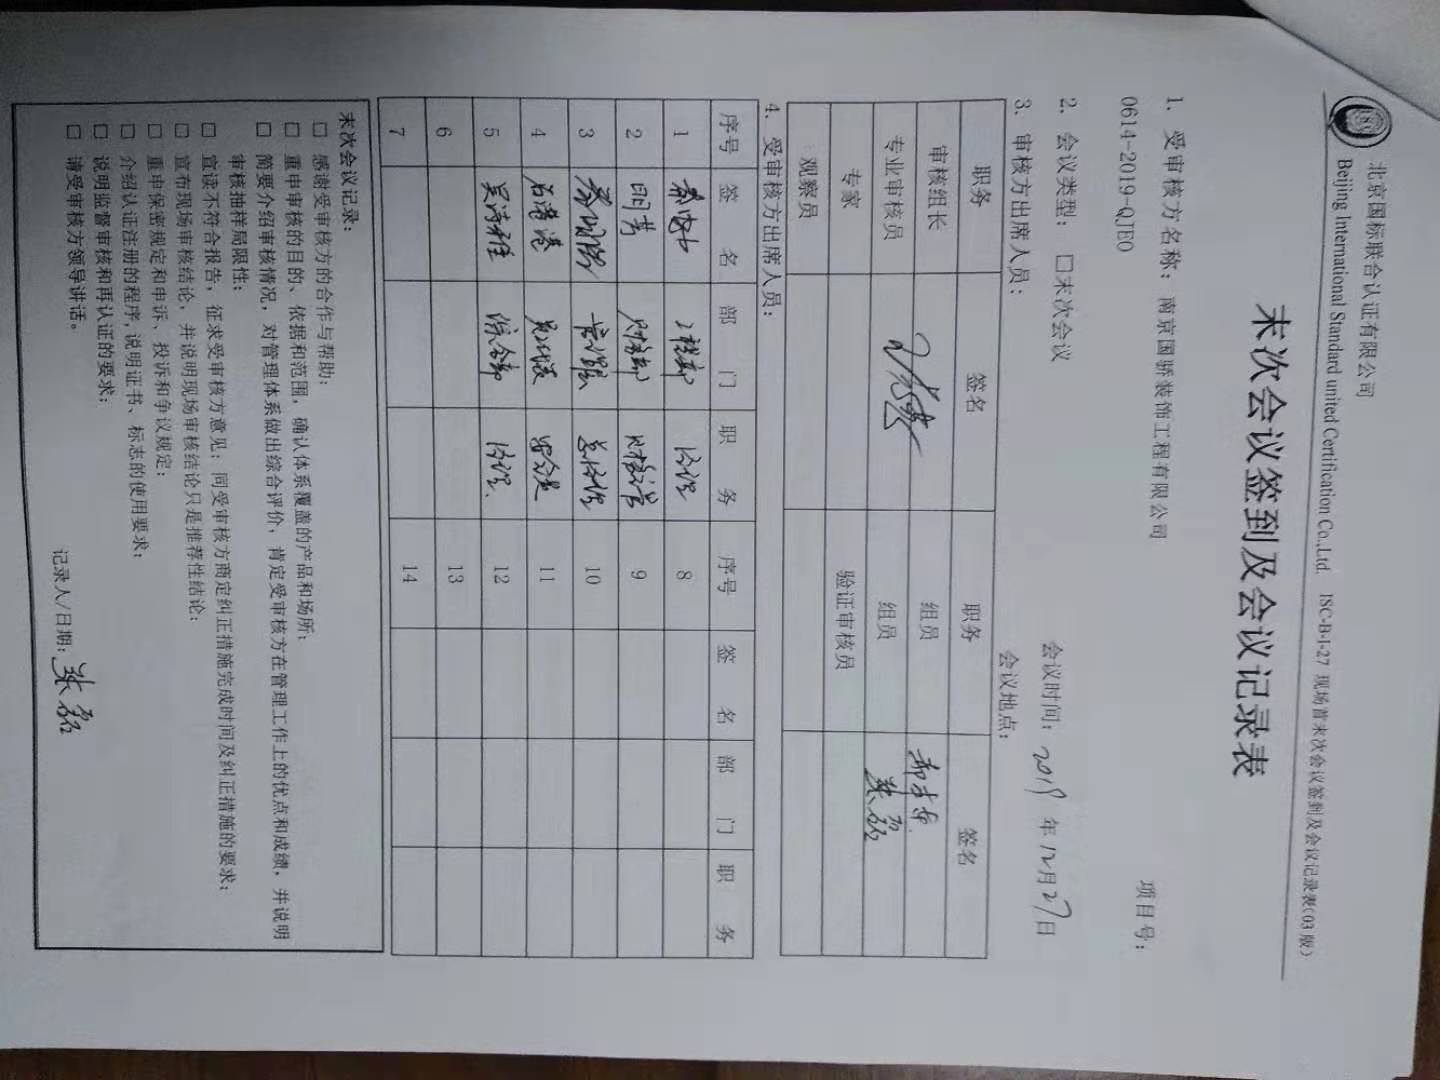 北京国标联合认证有限公司
Beijing International Standard united Certification Co.,Ltd. ISC-B-I-27 现场首末次会议签到及会议记录表(03版)
末次会议签到及会议记录表
1. 受审核方名称: 南京国骄装饰工程有限公司 项目号:
0614-2019-QJEO
2. 会议类型: □末次会议 会议时间: 2019 年 12月 27日
3. 审核方出席人员: 会议地点:
职务 签名 职务 签名
审核组长 组员
专业审核员 组员 张磊
专家 验证审核员
观察员
4. 受审核方出席人员:
序号 签 名 部 门 职 务 序号 签 名 部 门 职 务
1 工程部 经理 8
2 田芳 财务部 9
3 管理层 总经理 10
4 石潇潇 11
5 吴海稚 综合部 经理 12
6 13
7 14
末次会议记录:
□ 感谢受审核方的合作与帮助;
□ 重申审核的目的、依据和范围,确认体系覆盖的产品和场所;
□ 简要介绍审核情况,对管理体系做出综合评价,肯定受审核方在管理工作上的优点和成绩,并说明
审核抽样局限性;
□ 宣读不符合报告,征求受审核方意见;同受审核方商定纠正措施完成时间及纠正措施的要求;
□ 宣布现场审核结论,并说明现场审核结论只是推荐性结论;
□ 重申保密规定和申诉、投诉和争议规定;
□ 介绍认证注册的程序,说明证书、标志的使用要求;
□ 说明监督审核和再认证的要求;
□ 请受审核方领导讲话。
记录人/日期: 张磊